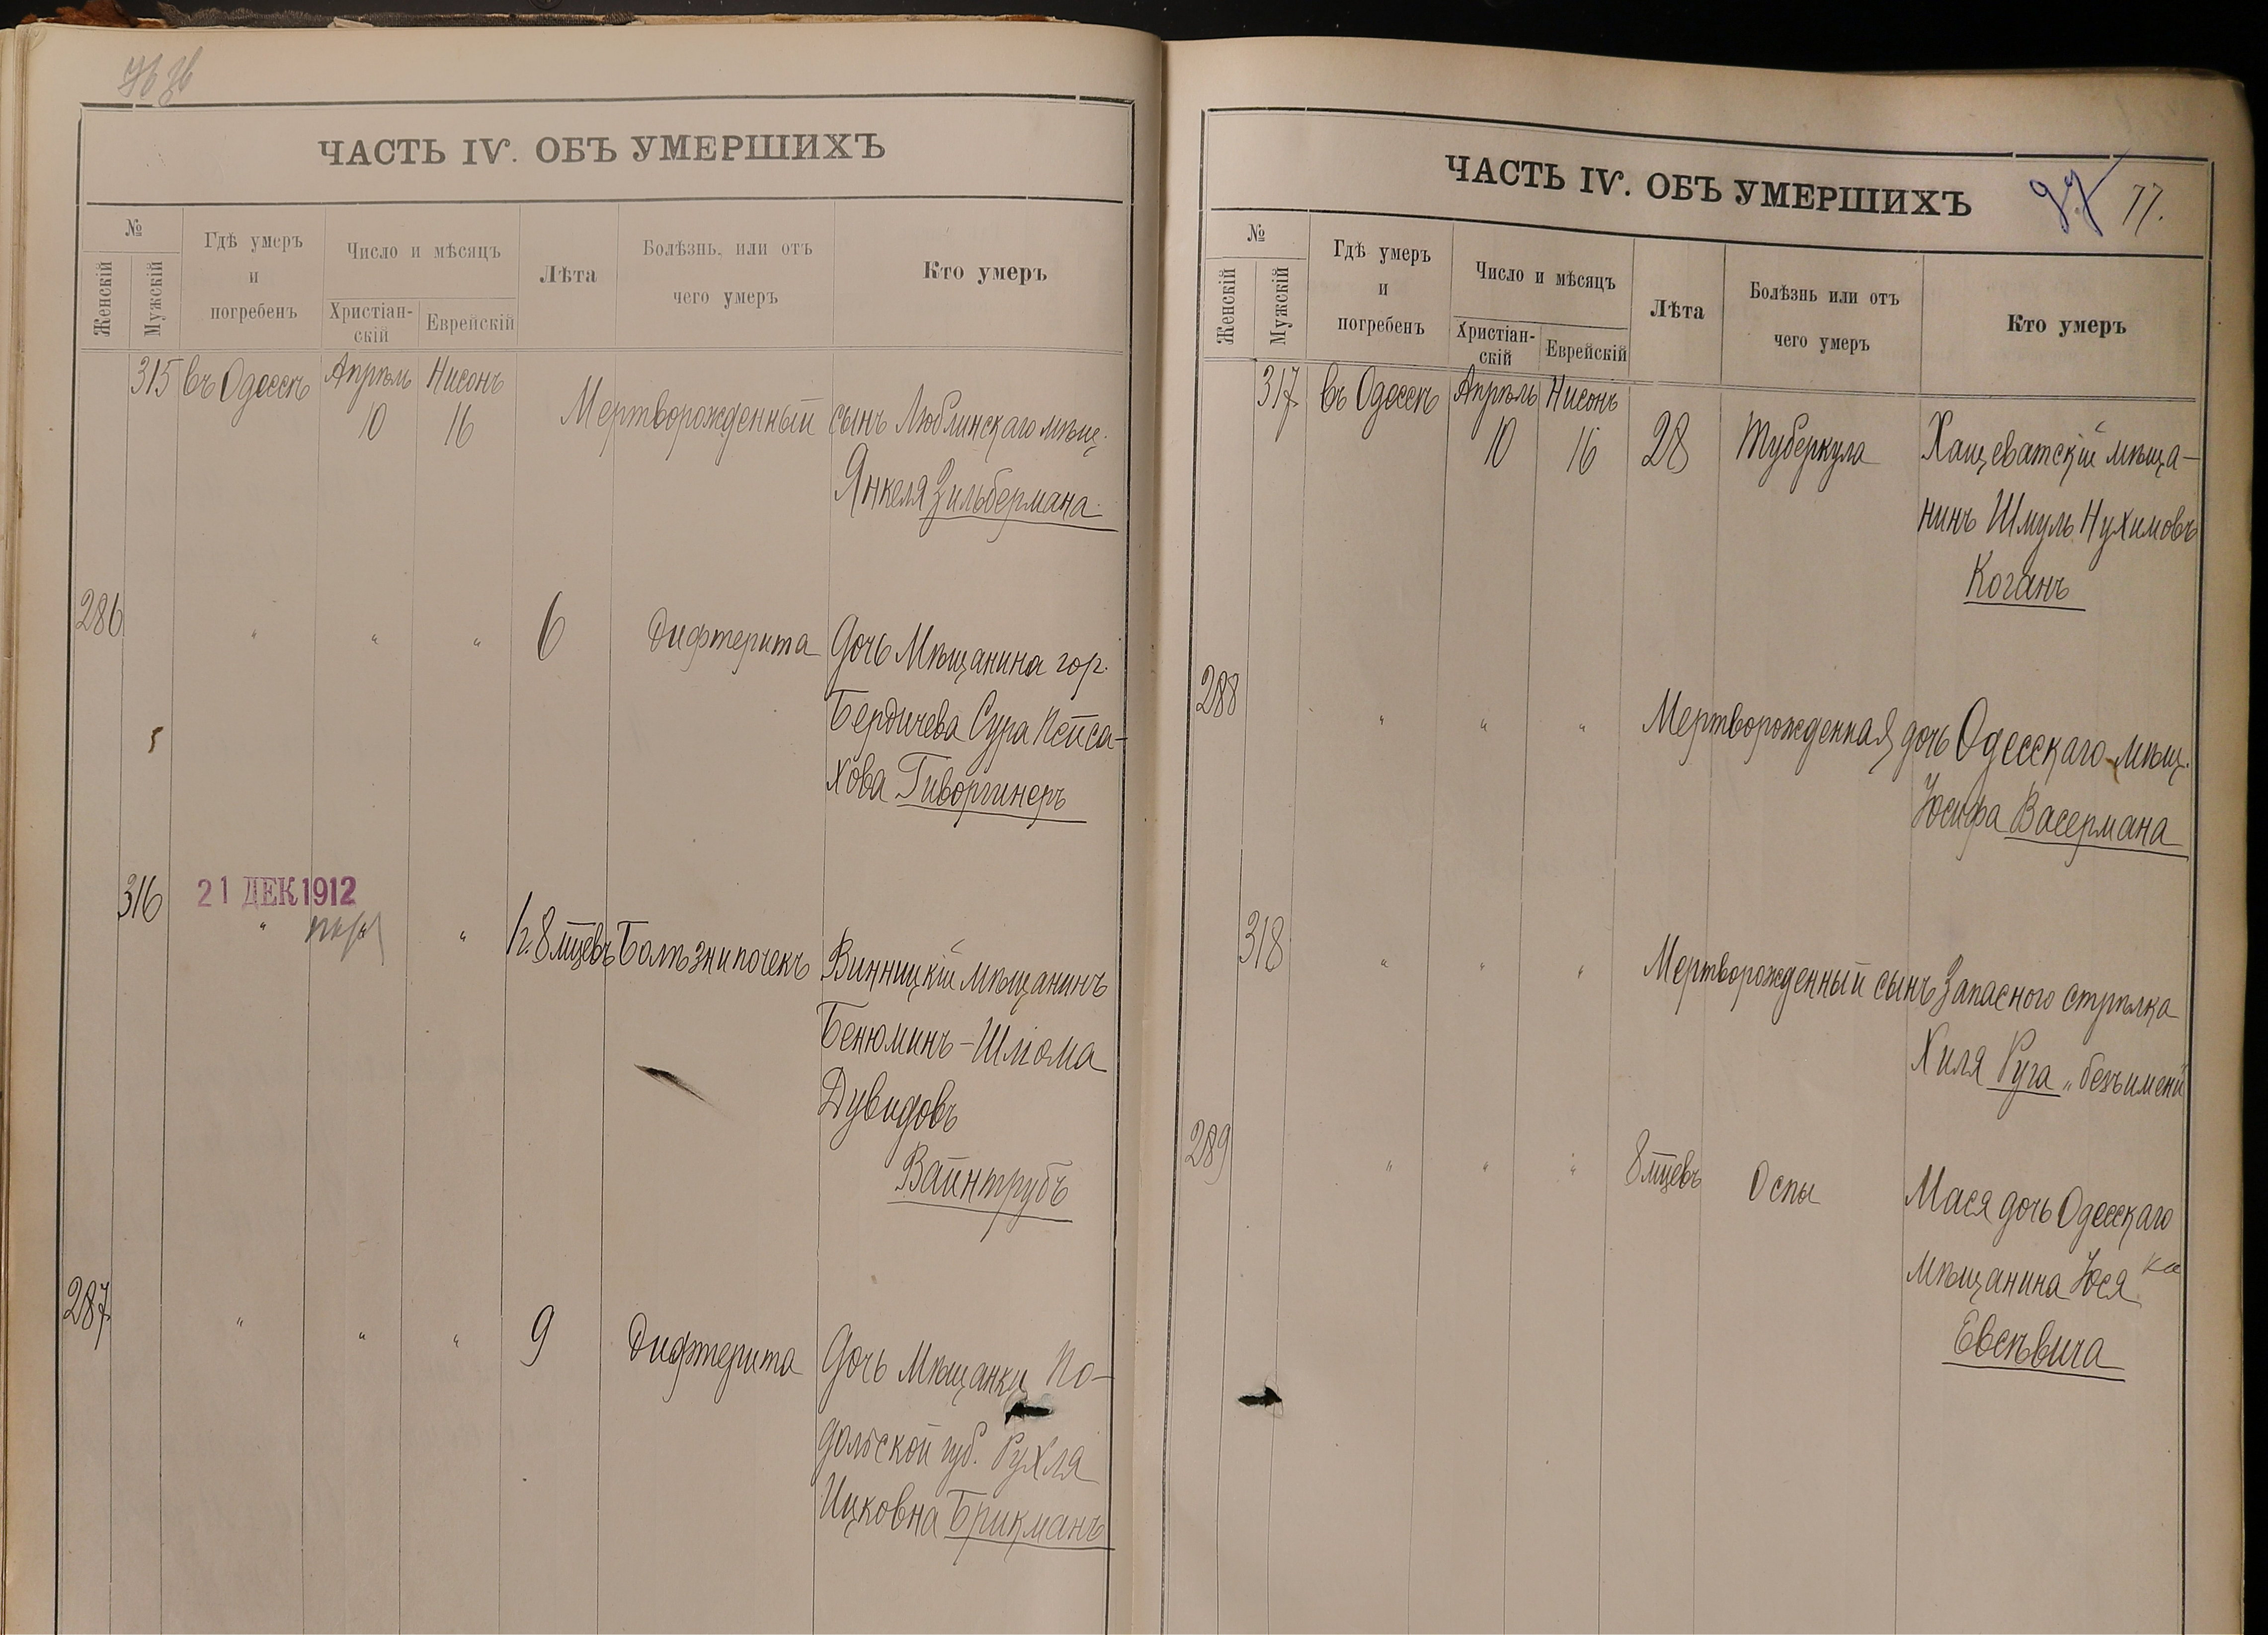 ЧАСТЬ IV. ОБЪ УМЕРШИХЪ
№
Женскій
Мужскій
Гдѣ умеръ
и
погребенъ
Число и мѣсяцъ
Христіан-
скій
Еврейскій
Лѣта
Болѣзнь, или отъ
чего умеръ
Кто умеръ
315 въ Одессѣ Апрѣль Нисонъ
10 16 Мертворожденный сынъ Люблинскаго мѣщ.
Янкеля Зильбермана
286 " " " 6 Дифтерита Дочь Мѣщанина гор.
Бердичева Сура Пейса-
хова Гиворгинеръ
21 ДЕК 1912
316 " " 1 г. 8 мцевъ Болѣзни почекъ Винницкій мѣщанинъ
Бенюминъ-Шлома
Дувидовъ
Вайнтрубъ
287 " " " 9 Дифтерита Дочь Мѣщанки По-
дольской губ. Рухля
Ицковна Брикманъ
ЧАСТЬ IV. ОБЪ УМЕРШИХЪ
77.
№
Женскій
Мужскій
Гдѣ умеръ
и
погребенъ
Число и мѣсяцъ
Христіан-
скій
Еврейскій
Лѣта
Болѣзнь или отъ
чего умеръ
Кто умеръ
317 въ Одессѣ Апрѣль Нисонъ
10 16 28 Туберкула Хащеватскій мѣща-
нинъ Шмуль Нухимовъ
Коганъ
288 " " " Мертворожденная дочь Одесскаго мѣщ.
Іосифа Васермана
318 " " " Мертворожденный сынъ Запасного стрѣлка
Хиля Руга "безъ имени"
289 " " " 8 мцевъ Оспы Мася дочь Одесскаго
мѣщанина Іося ка
Евсѣвича